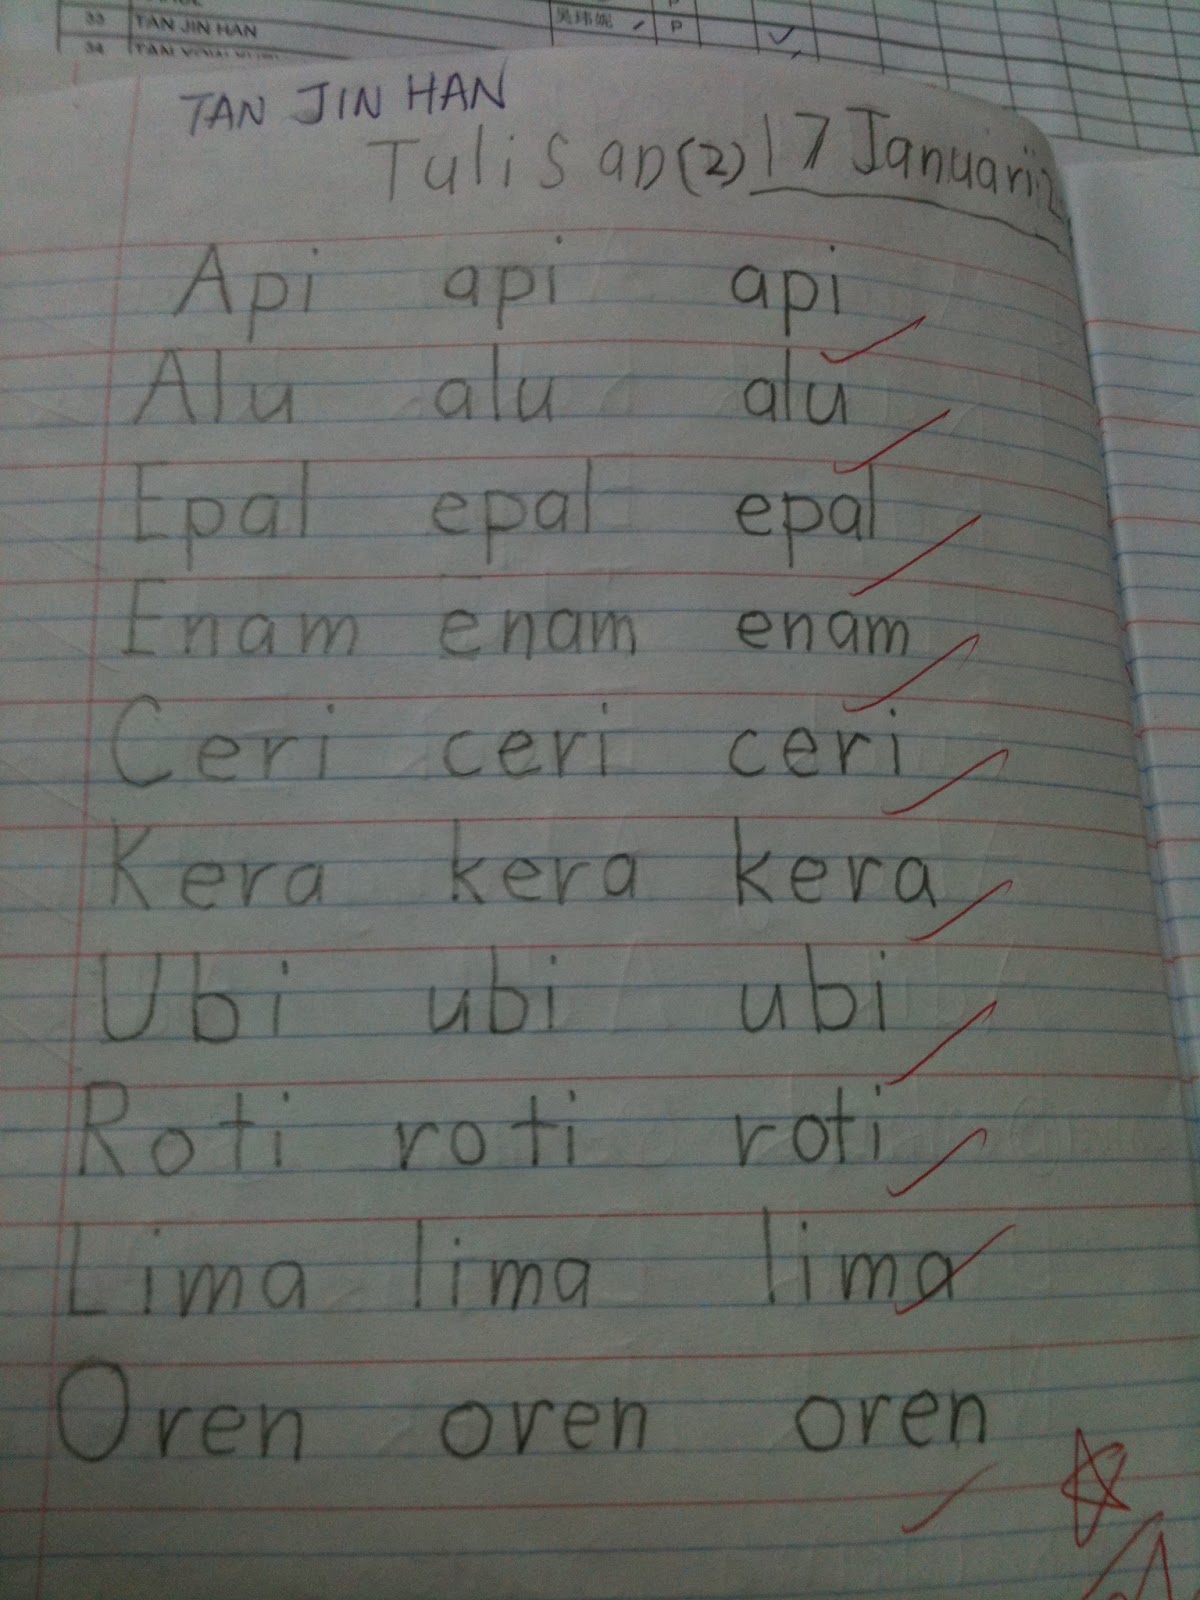 33 TAN JIN HAN P
34
TAN JIN HAN
Tulisan (2) 17 Januari
Api api api
Alu alu alu
Epal epal epal
Enam enam enam
Ceri ceri ceri
Kera kera kera
Ubi ubi ubi
Roti roti roti
Lima lima lima
Oren oren oren